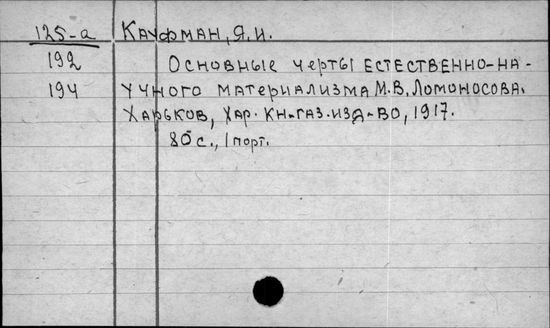 125-а КАУФМАН, Я. И.
192 ОСНОВНЫЕ ЧЕРТЫ ЕСТЕСТВЕННО-НА-
194 УЧНОГО МАТЕРИАЛИЗМА М.В. ЛОМОНОСОВА.
ХАРЬКОВ, ХАР. КН.-ГАЗ. ИЗД-ВО, 1917.
80 с., 1 порт.